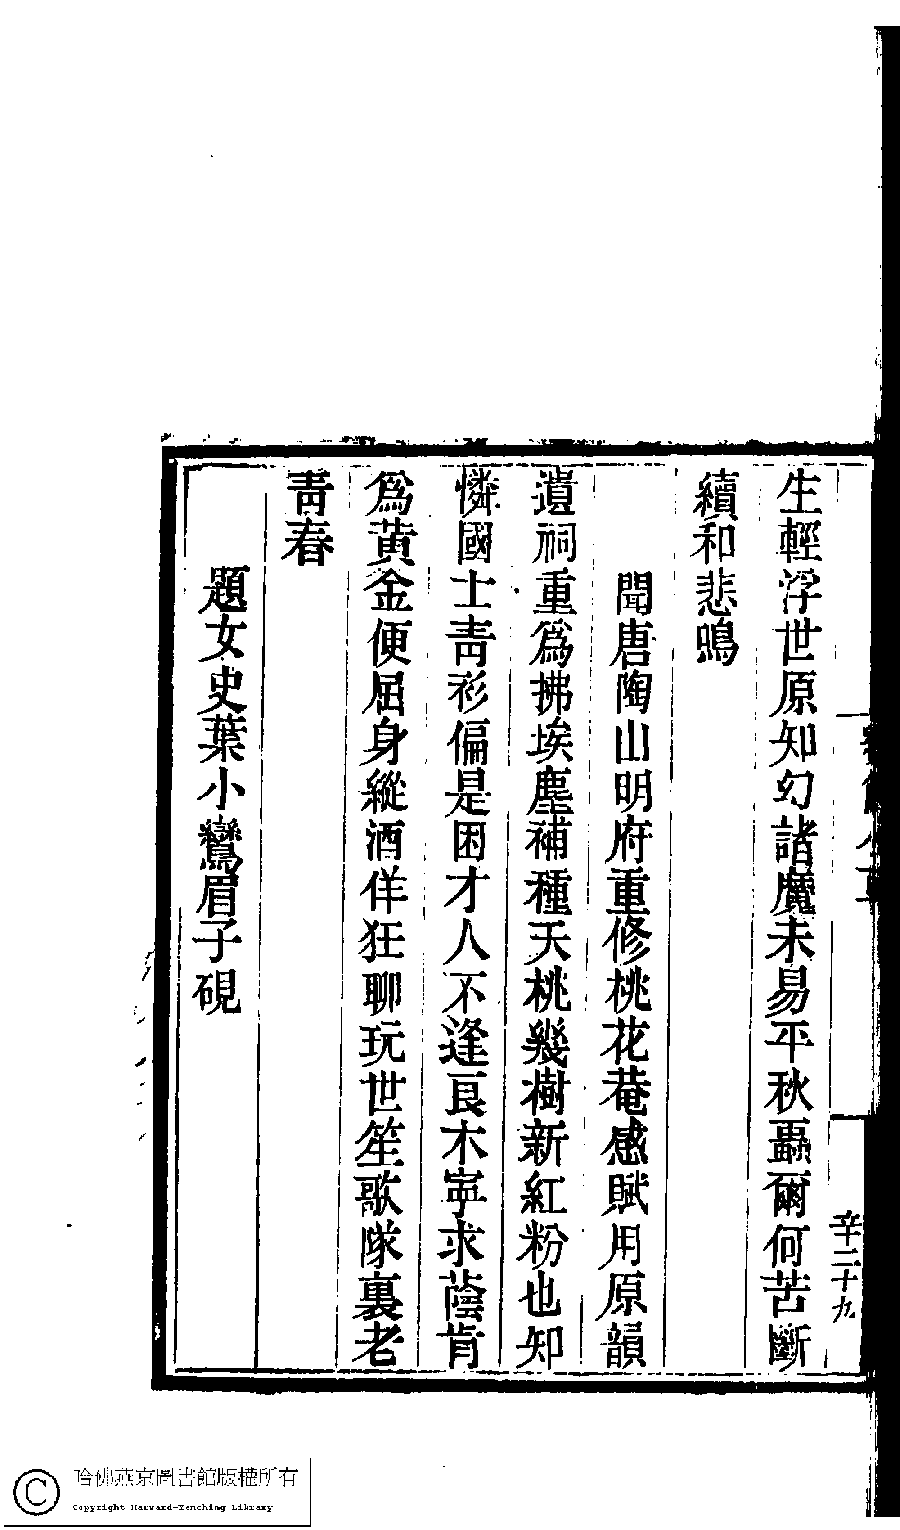 辛二十九
生輕浮世原知幻諸魔未易平秋蟲爾何苦斷
續和悲鳴
聞唐陶山明府重修桃花菴感賦用原韻
遺祠重爲拂埃塵補種天桃幾樹新紅粉也知
憐國士靑衫偏是困才人不逢良木寧求蔭肯
爲黃金便屈身縱酒佯狂聊玩世笙歌隊裏老
靑春
題女史葉小鸞眉子硯
哈佛燕京圖書館版權所有
Copyright Harvard-Yenching Library